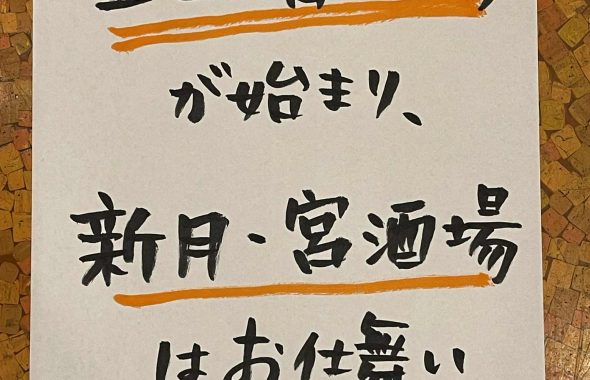 が始まり、
新月・宮酒場
はお仕舞い